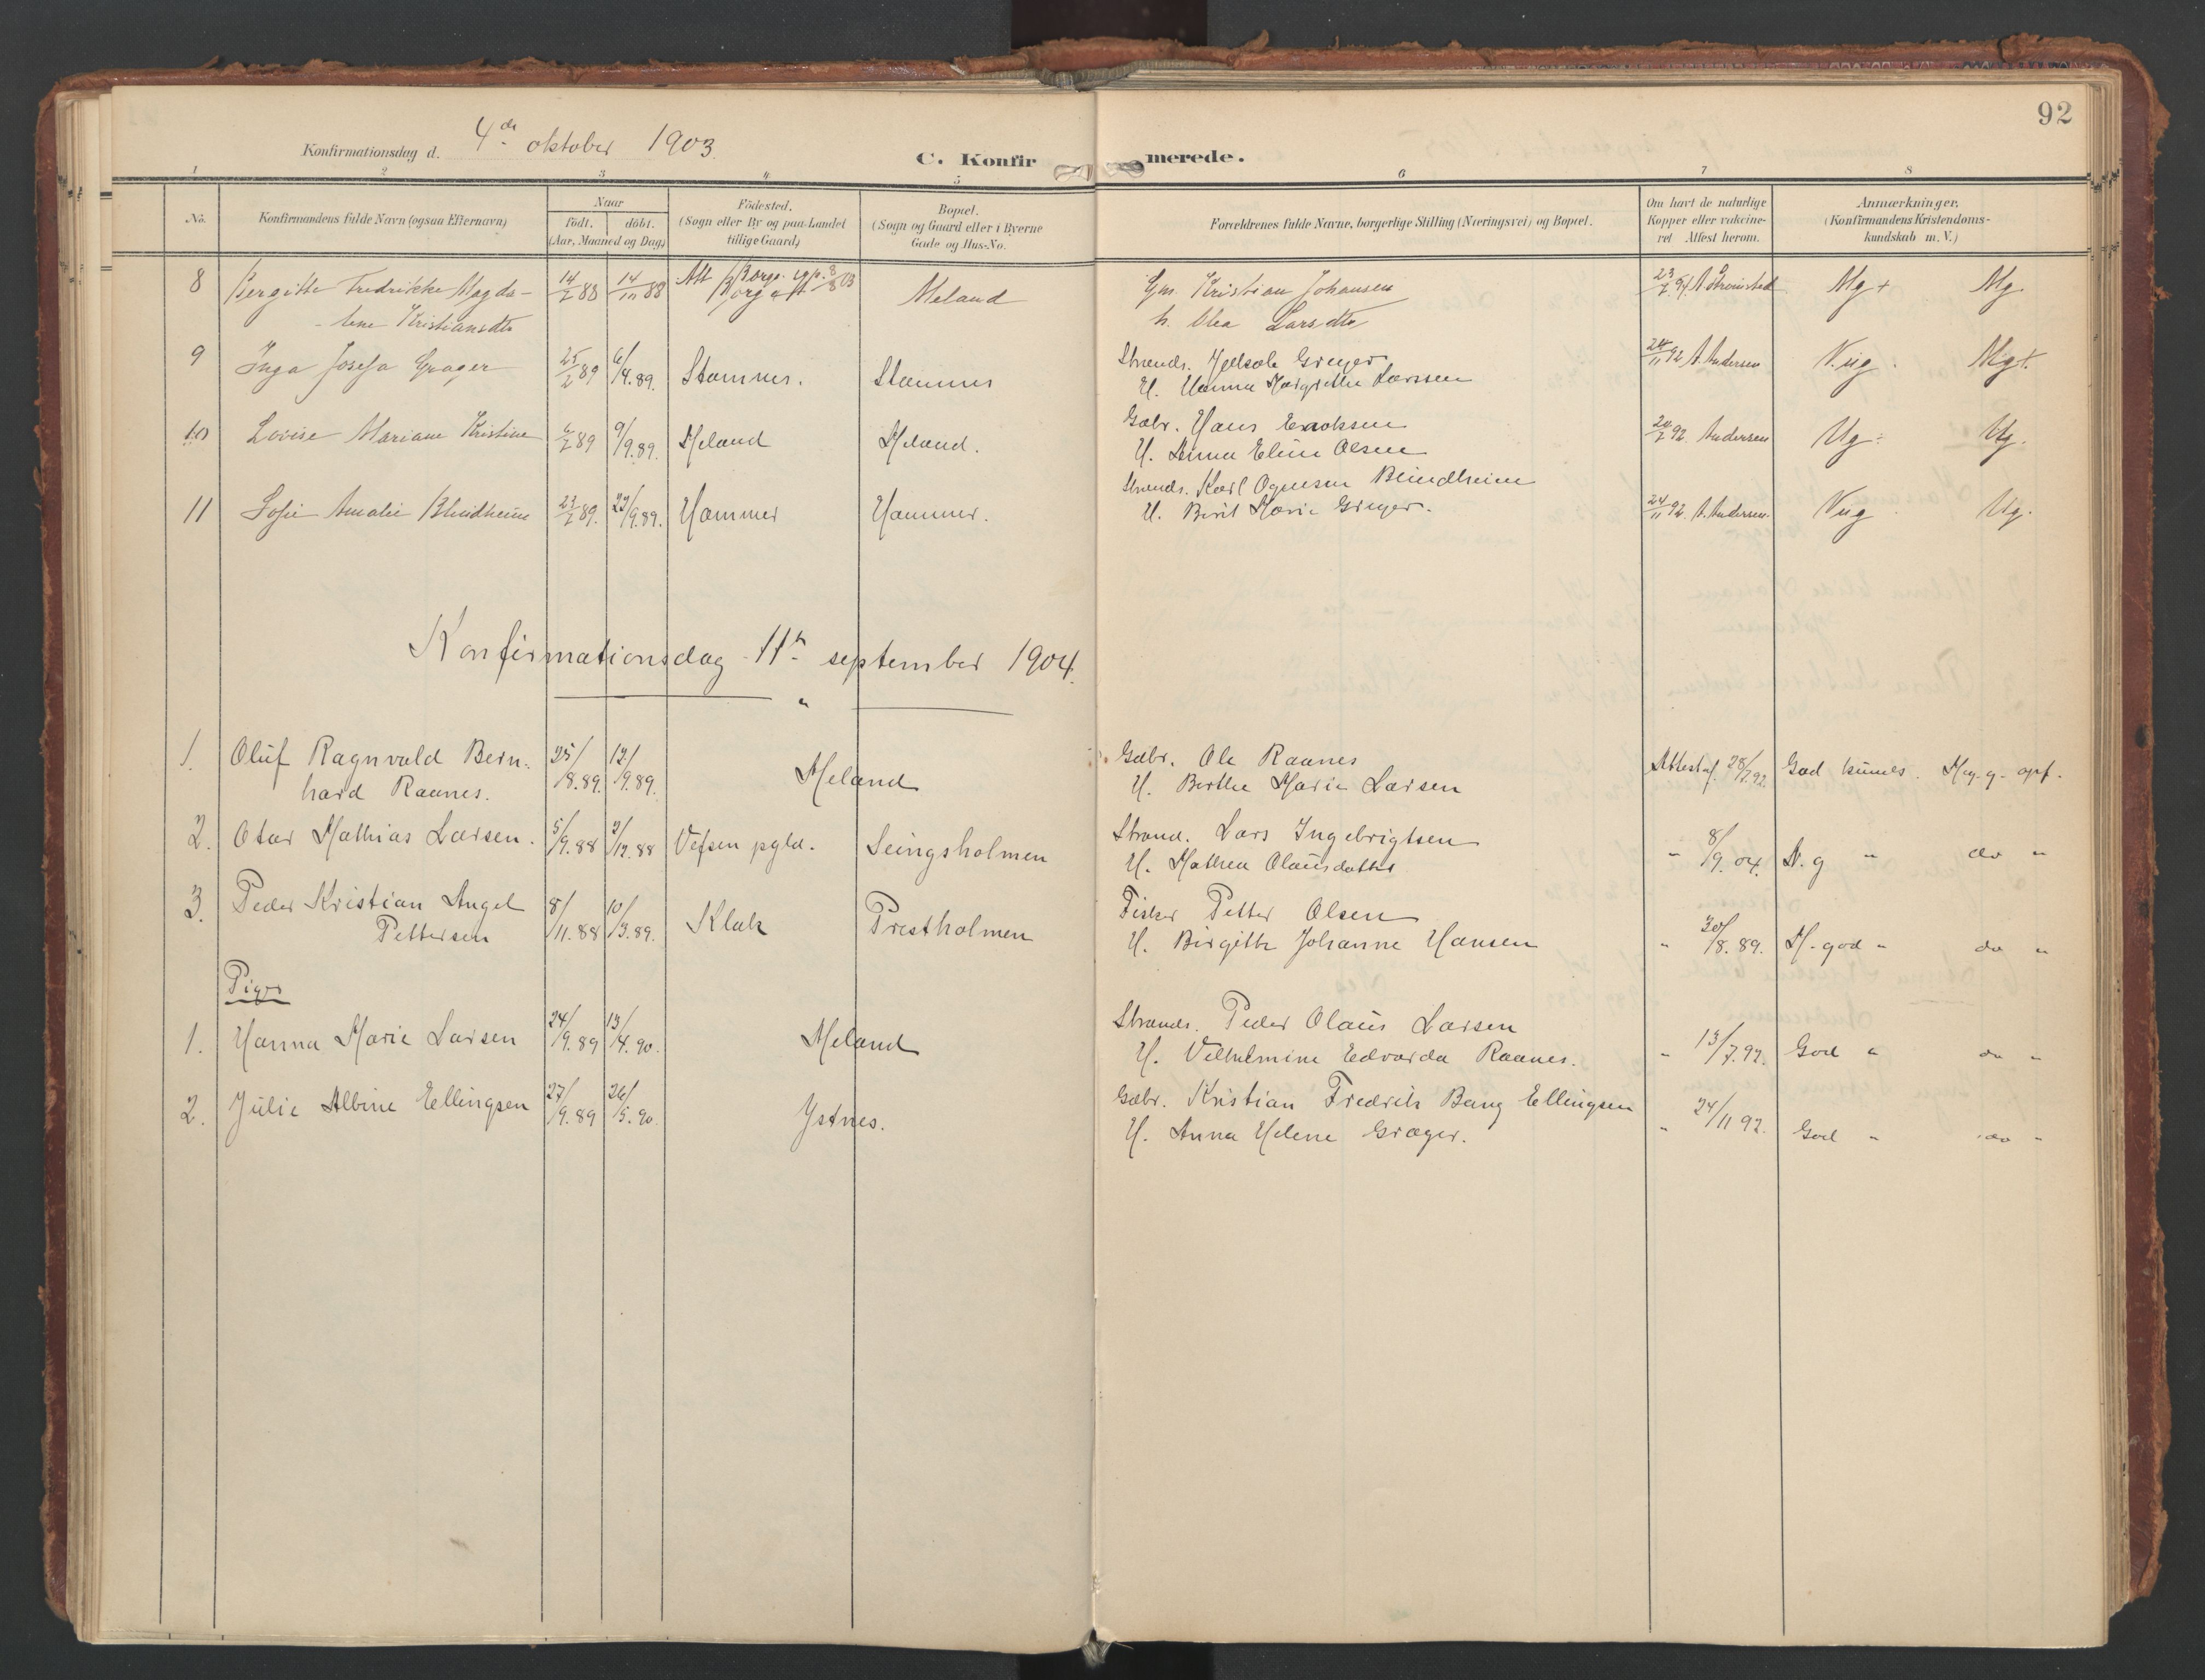 92
Konfirmationsdag d. 4de oktober 1903
C. Konfirmerede.
1 2 3 4 5 6 7 8
No.
Konfirmandens fulde Navn (ogsaa Efternavn)
Naar
født. døbt.
(Aar, Maaned og Dag)
Fødested.
(Sogn eller By og paa Landet
tillige Gaard)
Bopæl.
(Sogn og Gaard eller i Byerne
Gade og Hus-No.
Forældrenes fulde Navne, borgerlige Stilling (Næringsvei) og Bopæl.
Om havt de naturlige
Kopper eller vakcine-
ret Attest herom.
Anmærkninger.
(Konfirmandens Kristendoms-
kundskab m. V.)
8 Bergitte Fredrikke Magda- 14/2 88 14/10 88 Att Borge Meland Gm. Kristian Johansen 23/7 91 Mg+ Mg.
-lene Kristiansdtr h. Olea Larsdtr
9 Inga Josefa Grøger 25/2 89 6/4.89. Stamnes. Stamnes Strands. Grøger 24/11 92 A. Andersen N.ug. Mg+.
H. Hanna Margrethe Larssen
10 Lovise Mariane Kristine 6/2 89 9/9.89. Meland Meland. Gabr. Hans Enoksen 20/7 92. Andersen Ug÷ Ug.
H. Anna Eline Olsen
11 Sofie Amalie Blindheim 23/7 89. 22/9.89. Hammer Hammer. Strands. Karl Ogmsen Blindheim 24/11 92. A. Andersen. Nug Ug.
H. Berit Marie Grøger.
Konfirmationsdag 11te september 1904.
1. Oluf Ragnvald Bern- 25/8.89. 12/9.89. Meland Gabr. Ole Raanes Attest af 28/7.92. God kunds. Meg. g. opf.
hard Raanes. H. Berthe Marie Larsen
2. Otar Mathias Larsen. 5/9.88 2/12.88 Vefsen pgld. Seingsholmen Strand. Lars Ingebrigtsen " 8/9.04. N. g " do "
H. Mathea Olausdatter
3. Peder Kristian Angel 8/11.88 10/3.89. Klak Prestholmen Fisker Petter Olsen
Pettersen H. Birgitte Johanne Hansen " 30/8.89. M. god " do "
Piger
1. Hanna Marie Larsen 24/9.89 13/4.90. Meland Strands. Peder Olaus Larsen
H. Vilhelmine Edvarda Raanes. " 13/7.92. God " do "
2. Julie Albine Ellingsen 27/9.89 26/5.90. Ystnes. Gabr. Kristian Fredrik Bang Ellingsen
H. Anna Helene Grøger. " 24/11 92. God " do "